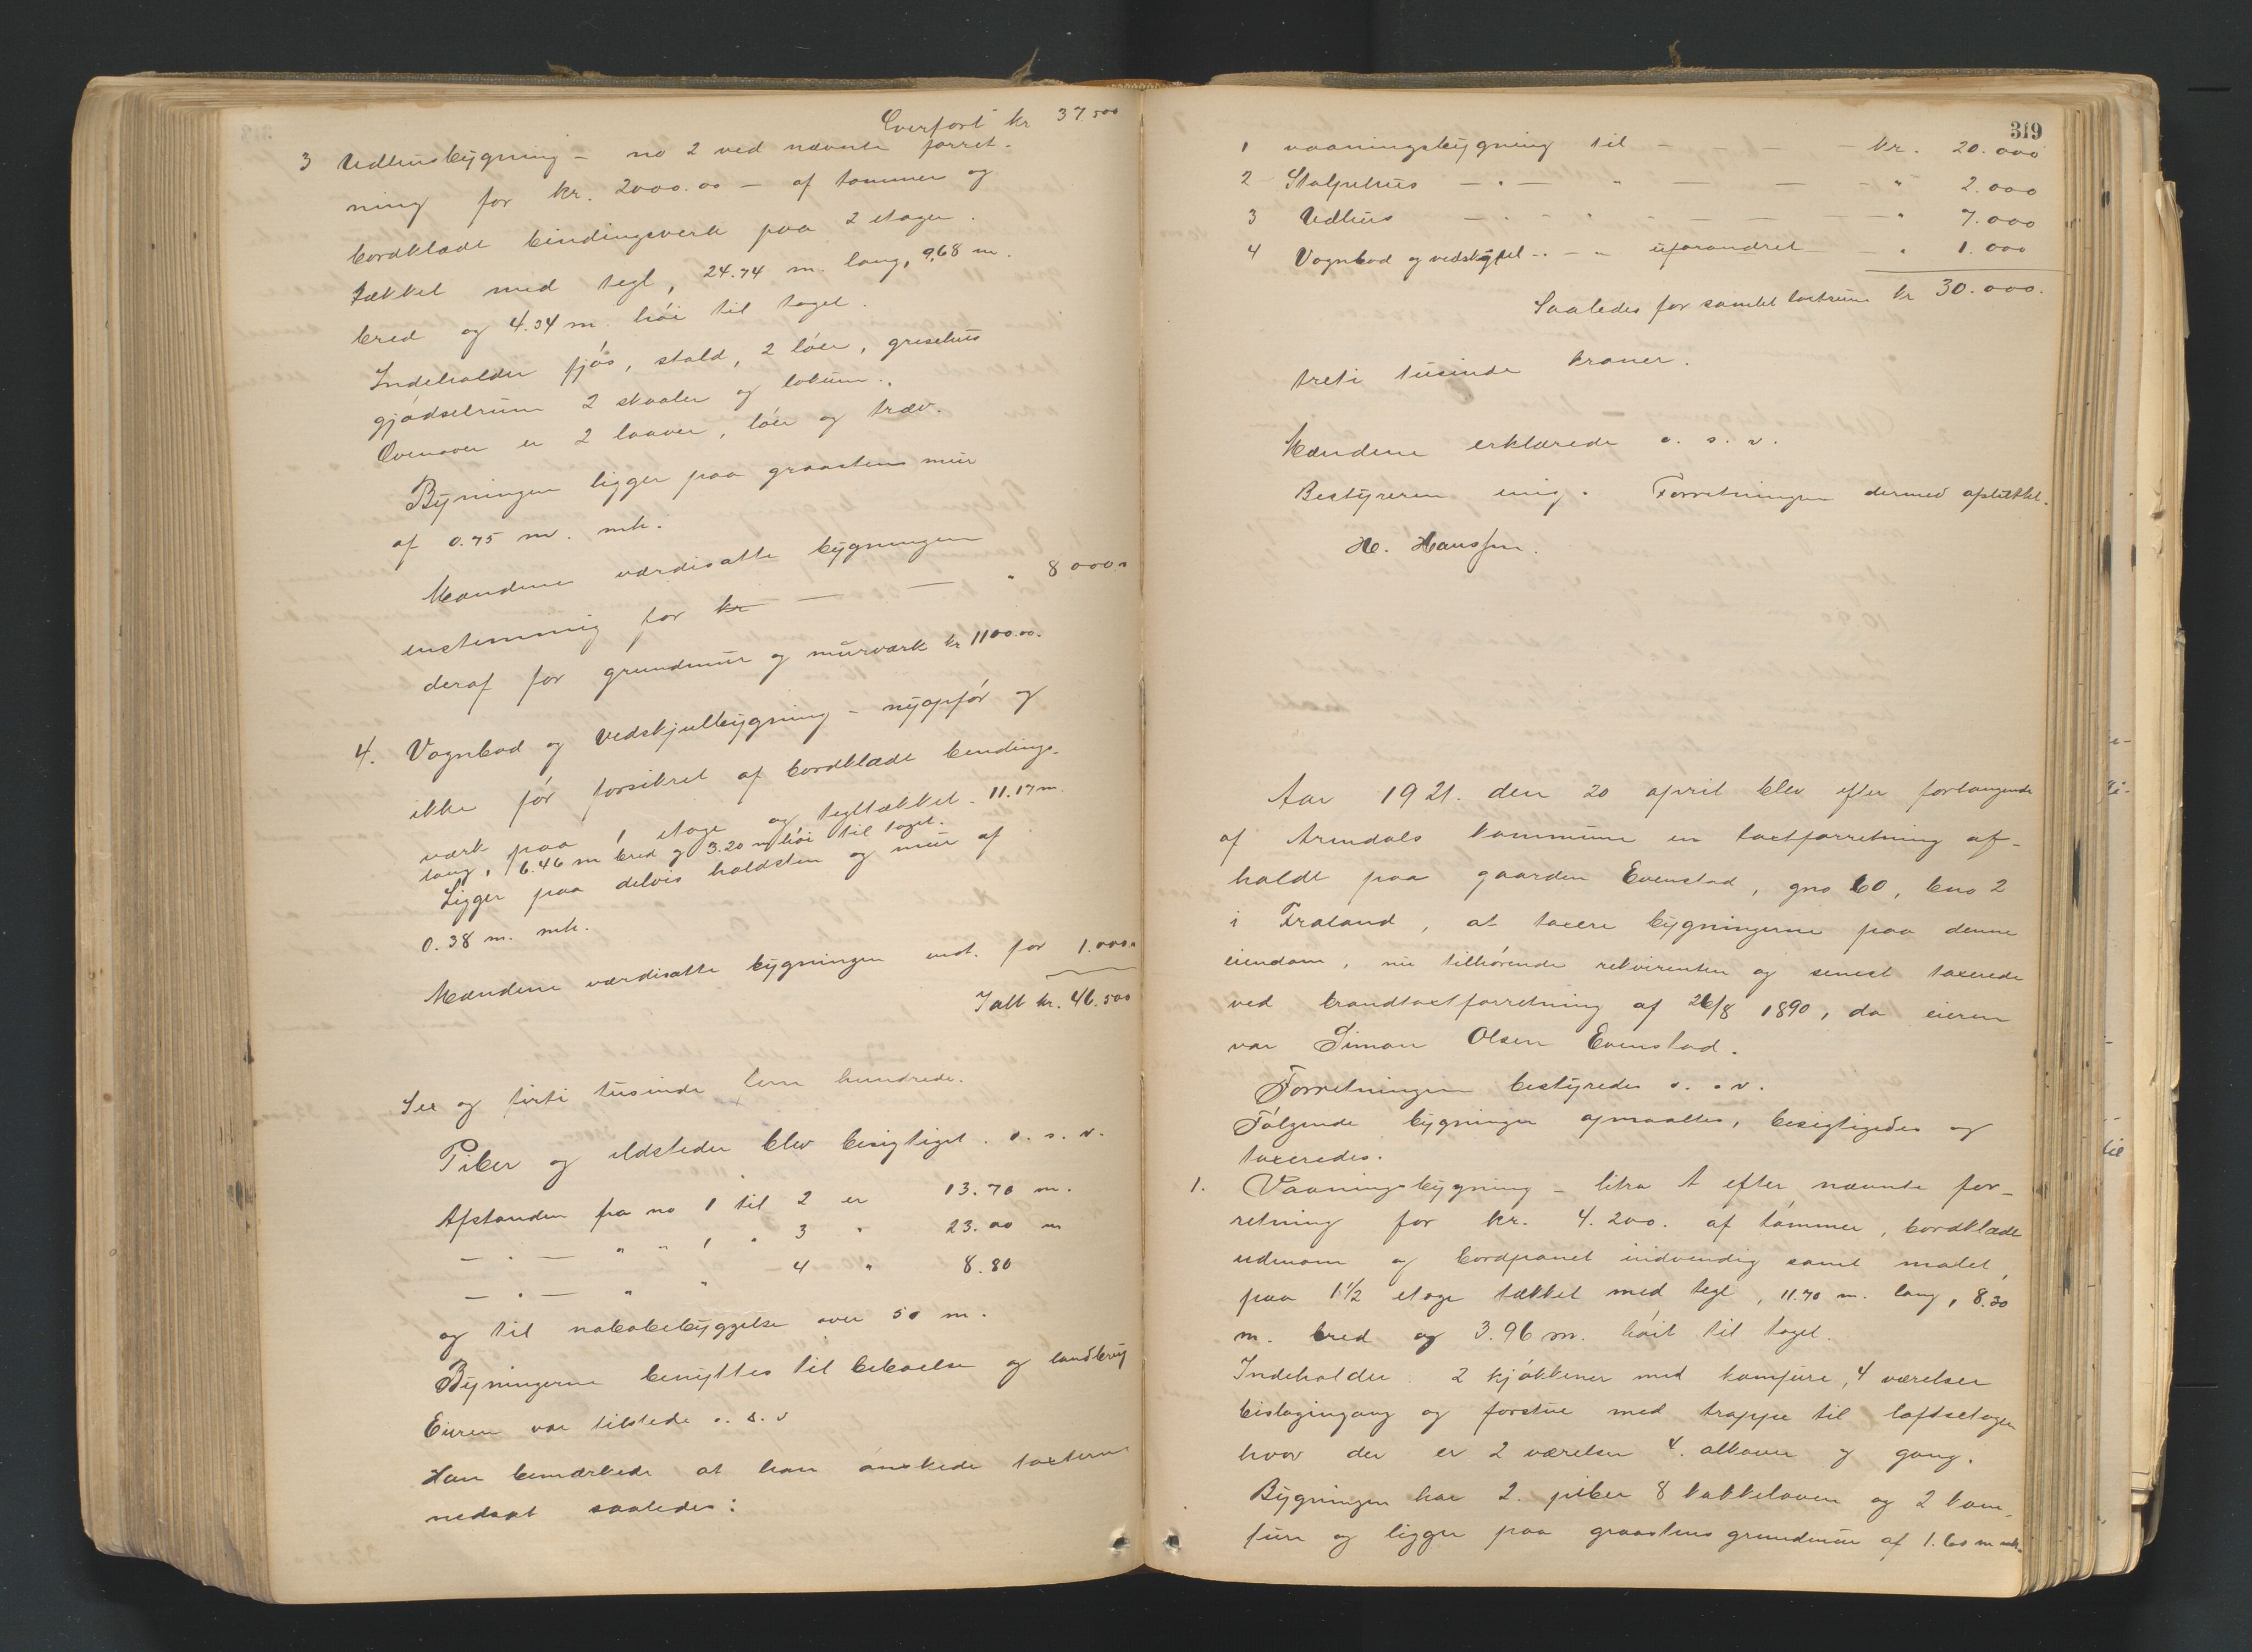 Overført kr 37.500
3 Udhusbygning - no 2 ved nævnte forret-
ning for kr. 2000.00 - af tømmer og
bordklædt bindingsverk paa 2 etager.
Tækket med tegl, 24.74 m. lang, 9.68 m.
bred og 4.34 m. høi til taget.
Indeholder fjøs, stald, 2 løer, grisehus
gjødselrum 2 skaaler og lokum.
Ovenover er 2 laaver, løer og træv.
Bygningen ligger paa graastens mur
af 0.75 m. mh.
Mændene værdisatte bygningen
enstemmig for kr — — " 8000.
deraf for grundmur og murværk kr 1100.00.
4. Vognbod og vedskjulbygning - nyopfør og
ikke før forsikret af bordklædt bindings-
værk paa 1 etage og tegltækket. 11.17 m
lang, 6.46 m bred og 3.20 m høi til taget.
Ligger paa delvis holdsten og mur af
0.38 m. mh.
Mændene værdisatte bygningen enst. for 1.000.
Ialt kr. 46.500
Sex og firti tusinde fem hundrede.
Piber og ildsteder blev besigtiget o. s. v.
Afstanden fra no 1 til 2 er 13.70 m.
— " — " " 1 " 3 " 23.00 m
— " — " " 4 " 8.80
og til nabobebyggelse over 50 m.
Bygningerne benyttes til beboelse og landbrug
Eieren var tilstede o. s. v
Han bemærkede at han ønskede taxterne
nedsat saaledes:
319
1 vaaningsbygning til - - - - kr. 20.000
2 Stolpehus — " — " — — - " 2.000
3 Udhus — " - " - — — — " 7.000
4 Vognbod og vedskjul - " - " uforandret — " 1.000
Saaledes for samlet taxtsum kr 30.000.
treti tusinde kroner.
Mændene erklærede o. s. v.
Bestyreren enig. Forretningen dermed afsluttet.
H. Hanssen.
Aar 1921. den 20 april blev efter forlangende
af Arendals kommune en taxtforretning af-
holdt paa gaarden Evenstad, gno 60, bno 2
i Froland, at taxere bygningerne paa denne
eiendom, nu tilhørende rekvirenten og senest taxerede
ved brandtaxtforretning af 26/8 1890, da eieren
var Simon Olsen Evenstad.
Forretningen bestyredes o. s. v.
Følgende bygninger opmaaltes, besigtigedes og
taxeredes.
1. Vaaningsbygning - litra A efter nævnte for-
retning for kr. 4.200. af tømmer, bordklædt
udenom og bordpanel indvendig samt malet,
paa 1 1/2 etage tækket med tegl, 11.70 m. lang, 8.30
m. bred og 3.96 m. høit til taget.
Indeholder 2 kjøkkener med komfure, 4 værelser
bislagingang og forstue med trappe til loftsetagen
hvor der er 2 værelser 4. alkover og gang.
Bygningen har 2. piber 8 kakkelovne og 2 kom-
fure og ligger paa graastens grundmur af 1.60 m mh.